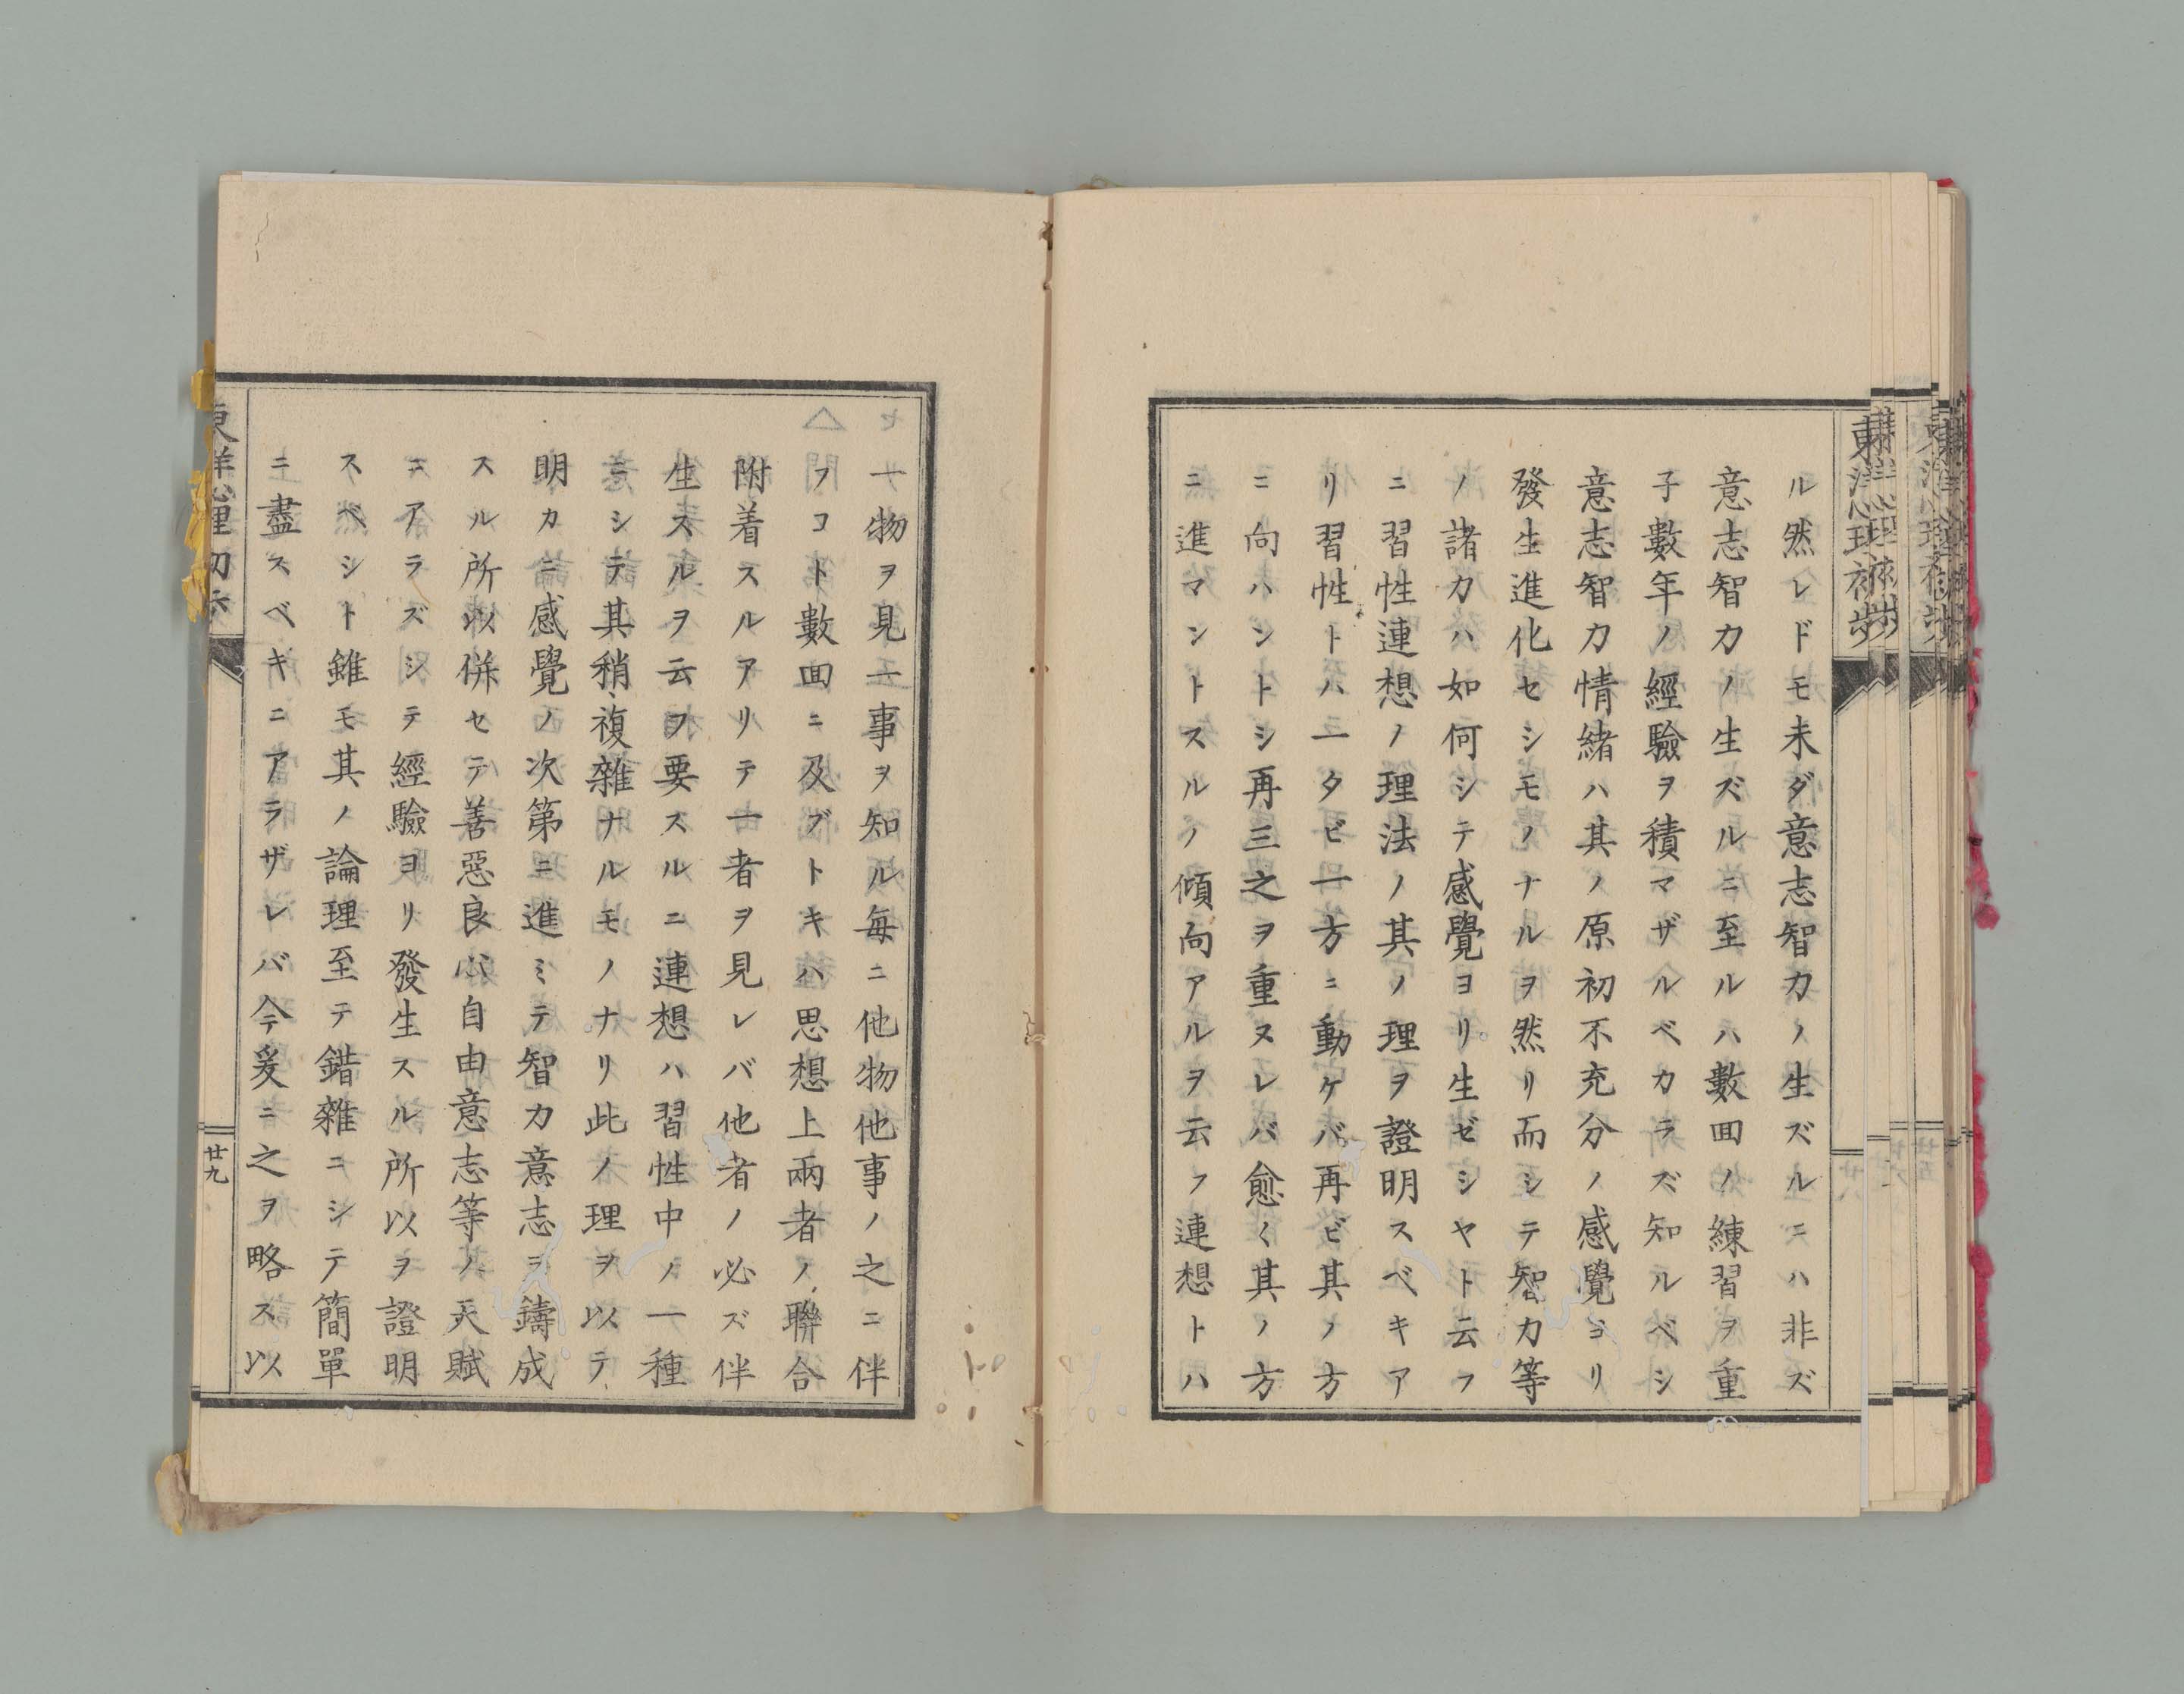 ル然レドモ未ダ意志智力ノ生ズルニハ非ズ
意志智力ノ生ズルニ至ルハ數回ノ練習ヲ重
子數年ノ經驗ヲ積マザルベカラズ知ルベシ
意志智力情緒ハ其ノ原初不充分ノ感覺ヨリ
發生進化セシモノナルヲ然リ而シテ智力等
ノ諸力ハ如何シテ感覺ヨリ生ゼシヤト云フ
ニ習性連想ノ理法ノ其ノ理ヲ證明スベキア
リ習性トハ一タビ一方ニ動ケバ再ビ其ノ方
ニ向ハントシ再三之ヲ重ヌレバ愈〱其ノ方
ニ進マントスルノ傾向アルヲ云フ連想トハ
一物ヲ見一事ヲ知ル毎ニ他物他事ノ之ニ伴
フコト數回ニ及ブトキハ思想上兩者ノ聯合
附着スルアリテ一者ヲ見レバ他者ノ必ズ伴
生スルヲ云フ要スルニ連想ハ習性中ノ一種
ニシテ其稍〻複雜ナルモノナリ此ノ理ヲ以テ
明カニ感覺ノ次第ニ進ミテ智力意志ヲ鑄成
スル所以併セテ善惡良心自由意志等ノ天賦
ニアラズシテ經驗ヨリ發生スル所以ヲ證明
スベシト雖モ其ノ論理至テ錯雜ニシテ簡單
ニ盡スベキニアラザレバ今爰ニ之ヲ略ス以
東洋心理初步
廿九